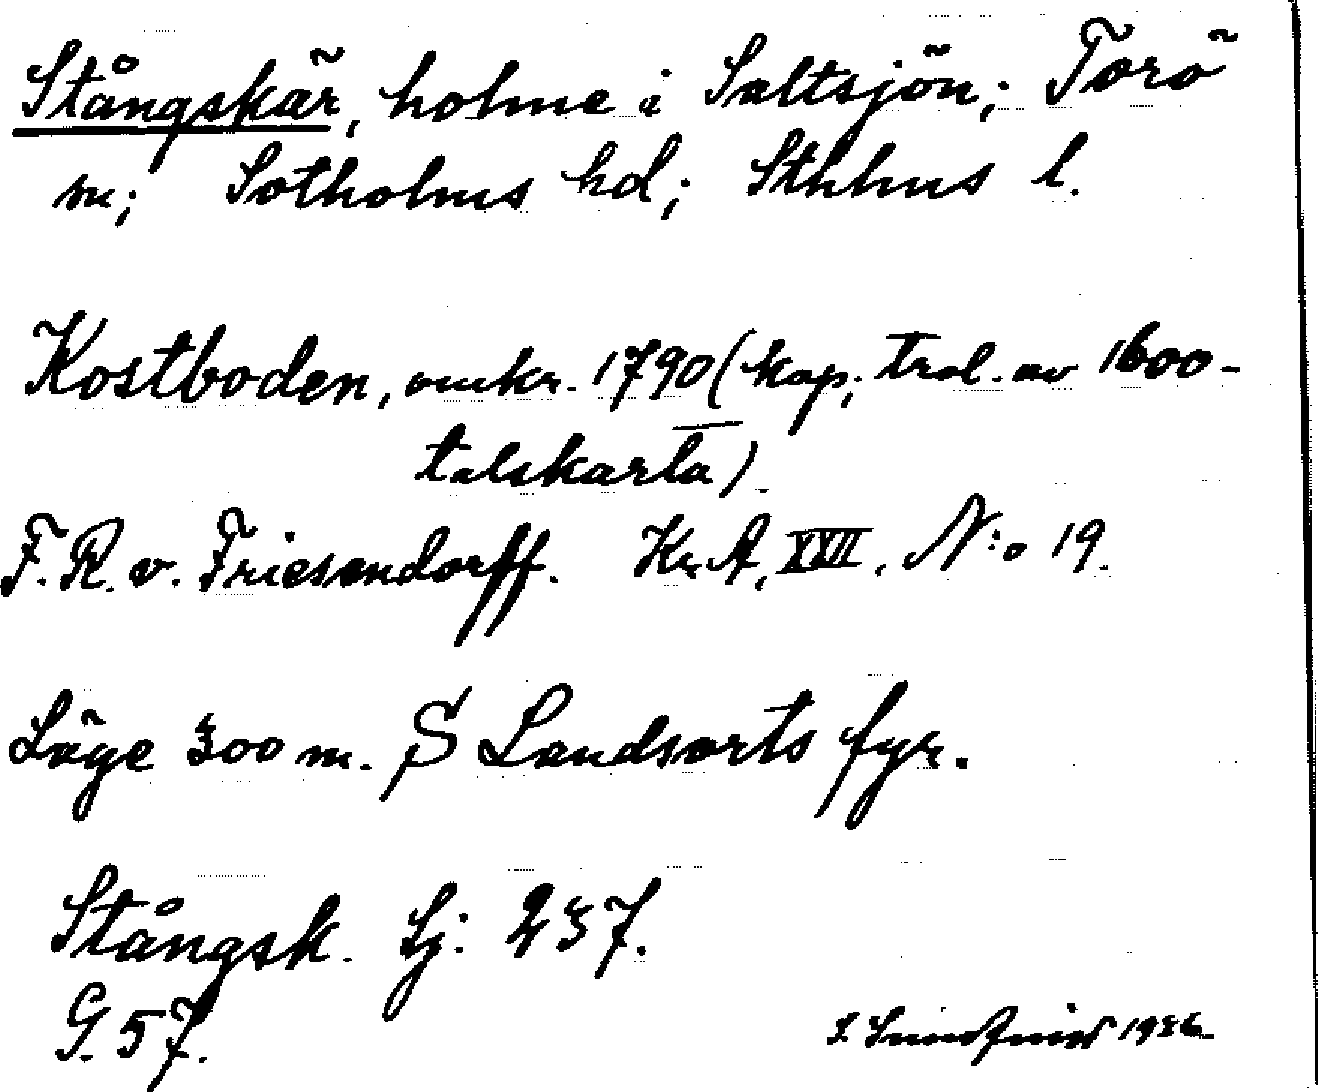 Stångskär, holme i Saltsjön; Torö
sn; Sotholms hd; Sthlms l.
Kostboden, omkr. 1790 (kop; trol. av 1600-
talskarta)
F. R. v. Friesendorff. Kr. A. XVII. N:o 19.
Läge 300 m. S Landsorts fyr.
Stångsk. Lj: 237.
G. 57.